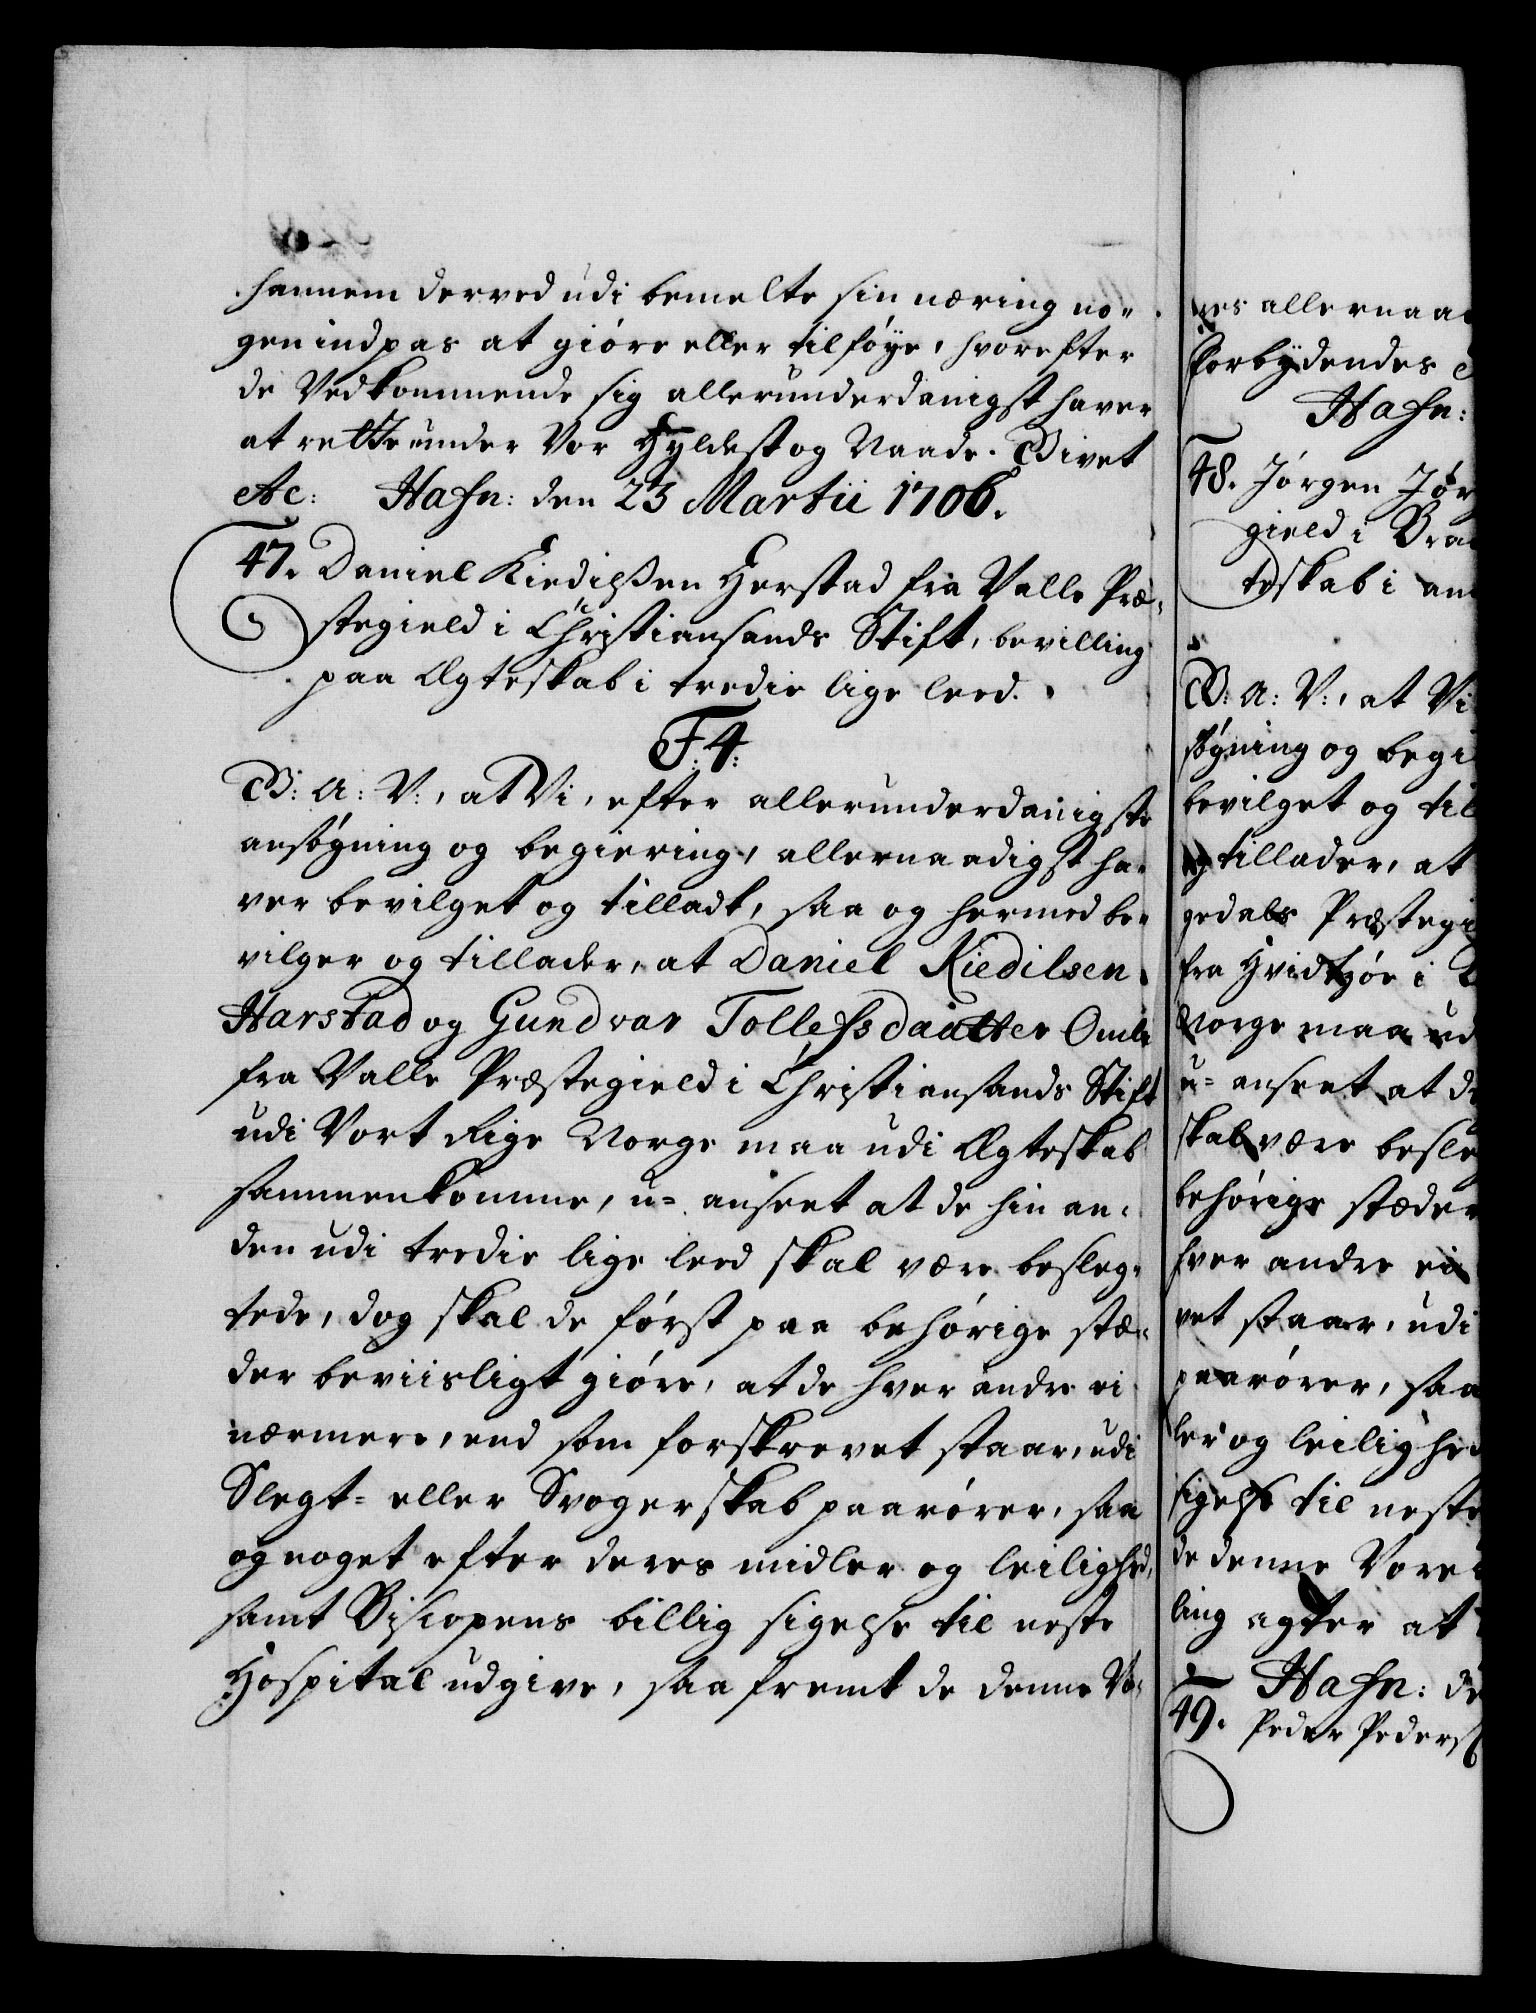 hannem derved udi bemelte sin næring no-
gen indpas at giöre eller tilföye, hvorefter
de Vedkommende sig allerunderdanigst haver
at rette under Vor Hyldest og Naade. Givet
etc: Hafn: den 23 Martii 1706.
47. Daniel Kiedilßen Herstad fra Valle Præ-
stegield i Christiansands Stift, bevilling
paa Ægteskab i tredie lige leed.
F. 4.
G: A: V:, at Vi, efter allerunderdanigste
ansögning og begiering, allernaadigst ha-
ver bevilget og tilladt, saa og hermed be-
vilger og tillader, at Daniel Kiedilsen
Harstad og Gundvar Tollefsdaatter Omli
fra Valle Præstegield i Christiansands Stift
udi Vort Rige Norge maa udi Ægteskab
sammenkomme, u- anseet at de hin an-
den udi tredie lige leed skal være besleg-
tede, dog skal de först paa behörige stæ-
der beviisligt giöre, at de hver andre ei
nærmere, end som forskrevet staar, udi
Slegt- eller Svogerskab paarörer, saa
og noget efter deres midler og leilighed,
samt Biscopens billig sigelse til neste
Hospital udgive, saa fremt de denne Vo-
res allernaa
Forbydendes
Hafn:
48. Jörgen Jör
gield i Bra
teskab i an
G: A: V:, at Vi
sögning og begi
bevilget og til
og tillader, at
gedals Præstegi
fra Hvidtzöe i
Norge maa ud
u- anseet at de
skal være besle
behörige stæder
hver andre ei
vet staar, udi
paarörer, saa
ler og leilighed
sigelse til neste
de denne Vores
ling agter at
Hafn: de
49. Peder Peders